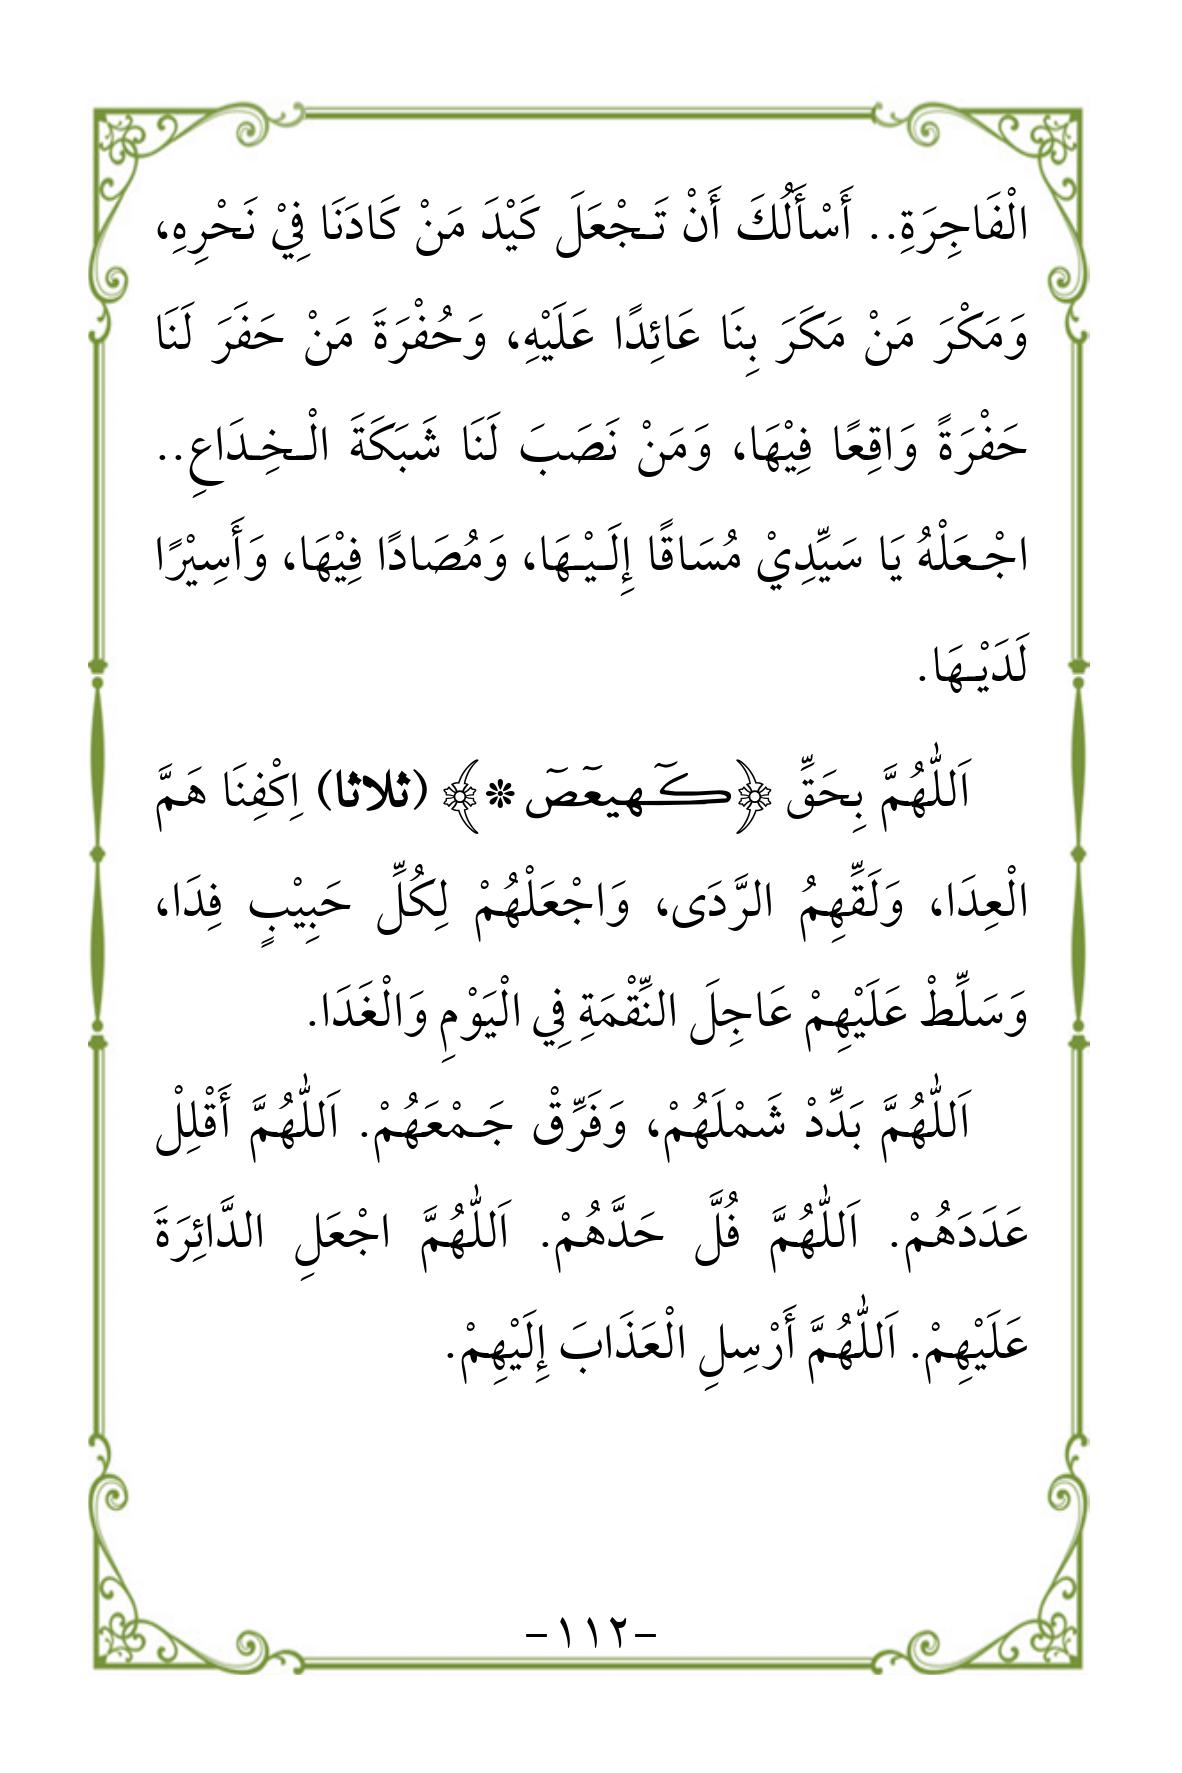 الْفَاجِرَةِ.. أَسْأَلُكَ أَنْ تَـجْعَلَ كَيْدَ مَنْ كَادَنَا فِيْ نَحْرِهِ،
وَمَكْرَ مَنْ مَكَرَ بِنَا عَائِدًا عَلَيْهِ، وَحُفْرَةَ مَنْ حَفَرَ لَنَا
حَفْرَةً وَاقِعًا فِيْهَا، وَمَنْ نَصَبَ لَنَا شَبَكَةَ الْـخِـدَاعِ..
اجْـعَلْهُ يَا سَيِّدِيْ مُسَاقًا إِلَـيْـهَا، وَمُصَادًا فِيْهَا، وَأَسِيْرًا
لَدَيْـهَا.
اَللّٰهُمَّ بِحَقِّ ﴿كٓـهيعٓصٓ ❋﴾ (ثلاثا) اِكْفِنَا هَمَّ
الْعِدَا، وَلَقِّهِمُ الرَّدَى، وَاجْعَلْهُمْ لِكُلِّ حَبِيْبٍ فِدَا،
وَسَلِّطْ عَلَيْهِمْ عَاجِلَ النِّقْمَةِ فِي الْيَوْمِ وَالْغَدَا.
اَللّٰهُمَّ بَدِّدْ شَمْلَهُمْ، وَفَرِّقْ جَـمْعَهُمْ. اَللّٰهُمَّ أَقْلِلْ
عَدَدَهُمْ. اَللّٰهُمَّ فُلَّ حَدَّهُمْ. اَللّٰهُمَّ اجْعَلِ الدَّائِرَةَ
عَلَيْهِمْ. اَللّٰهُمَّ أَرْسِلِ الْعَذَابَ إِلَيْهِمْ.
-١١٢-